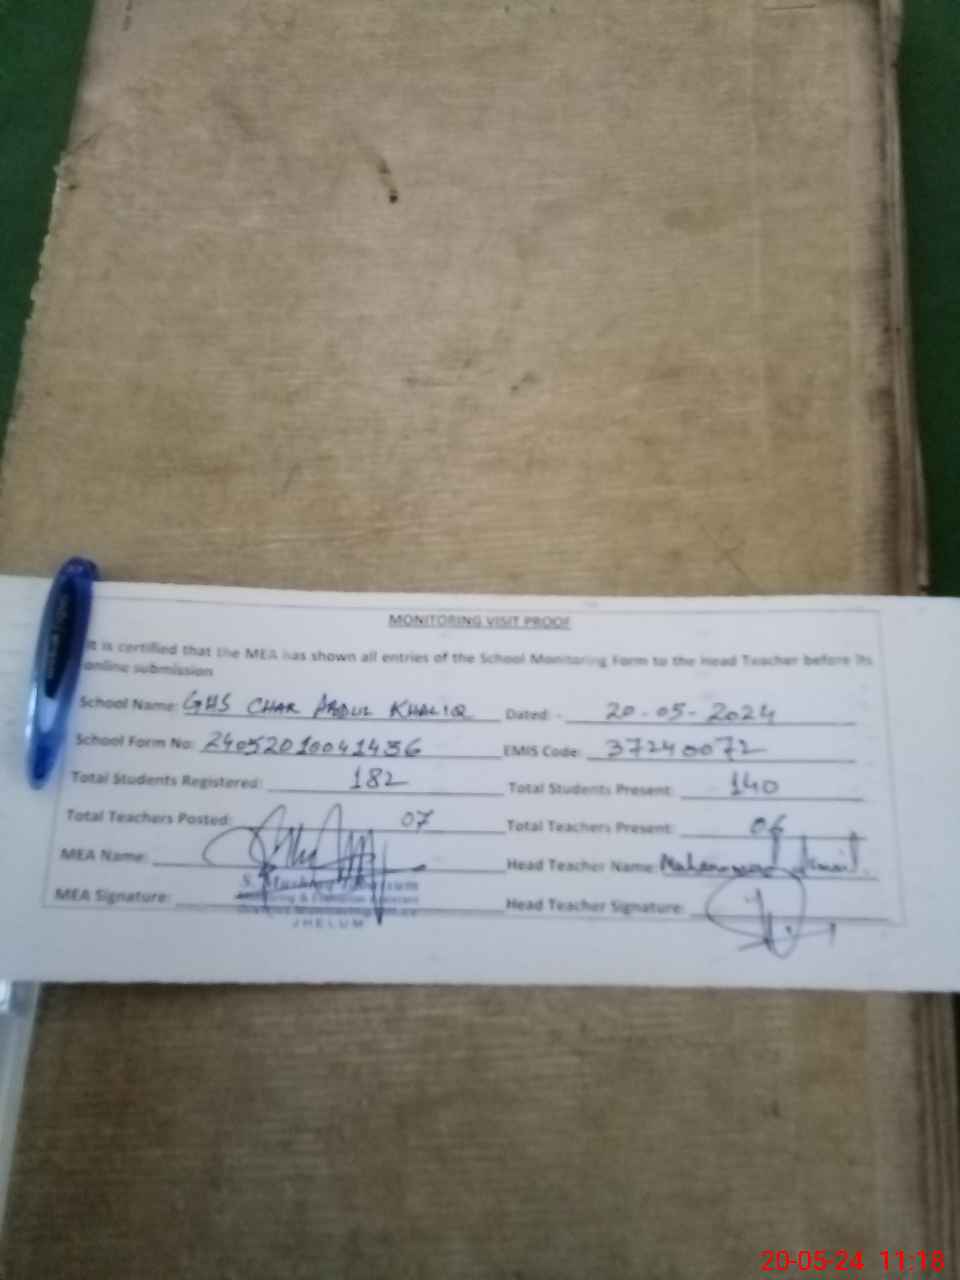 MONITORING VISIT PROOF
It is certified that the MEA has shown all entries of the School Monitoring Form to the Head Teacher before its
online submission
School Name: GHS CHAK ABDUL KHALIQ Dated:- 20-05-2024
School Form No: 24052010041436 EMIS Code: 37240072
Total Students Registered: 182 Total Students Present: 140
Total Teachers Posted: 07 Total Teachers Present: 06
MEA Name: Head Teacher Name: Muhammad
MEA Signature: Head Teacher Signature:
JHELUM
20-05-24 11:18